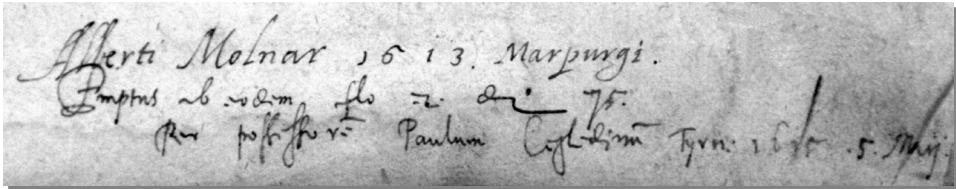 Alberti Molnar 1613. Marpurgi.
Emptus ab eodem flo 2. den 75.
Per possessorē Paulum Cegledinū Tyrn. 16 5. Maij.